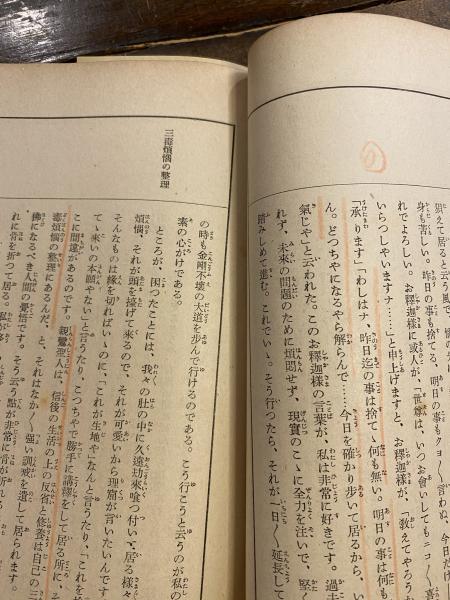 えて居ると云う風で、
身も苦しい。昨日の事も捨る、明日の事もクヨ〱言わぬ、今日だけ
れでよろしい。お釋迦樣に或人が、「世尊は、いつお會いしてもニコ〱喜
いらつしやいますナ……」と申上げますと、お釋迦樣が、「敎えてやろう
「承ります」「わしはナ、昨日迄の事は捨てゝ何も無い。明日の事は何も
ん。どつちやになるやら解らんで……今日を確かり歩いて居るから、い
氣じや」と云われた。このお釋迦樣の言葉が、私は非常に好きです。過
れず、未來の問題のために煩悶せず、現實のこゝに全力を注いで、堅く
踏みしめて進む。これでいゝ。そう行つたら、それが一日〱延長して
三毒煩惱の整理
の時も金剛不壞の大道を步んで行けるのである。こう行こうと云うのが私の
素の心けである。
ところが、困つたことには、我々の肚の中に久遠劫來喰つ付いて居る樣々
煩惱、それが頭を擡げて來るので、それが可愛いから理窟が言いたいんです
そんなものは緣を切ればいゝのに、「これが生地や」なんと言うたり、「これを
てゝ來いの本願やない」と言うたり、こつちやで勝手に諦釋をして居る所に、そ
こに間違があるのです。親鸞聖人は、信後の生活の上の反省と修養は自己の三
毒煩惱の整理にあるんだ、と、それはなかなく强い訓戒を遺して居られます。
佛になるべき人間の覺悟です。そう云う點が非常に
れに骨を折つて居る。私が